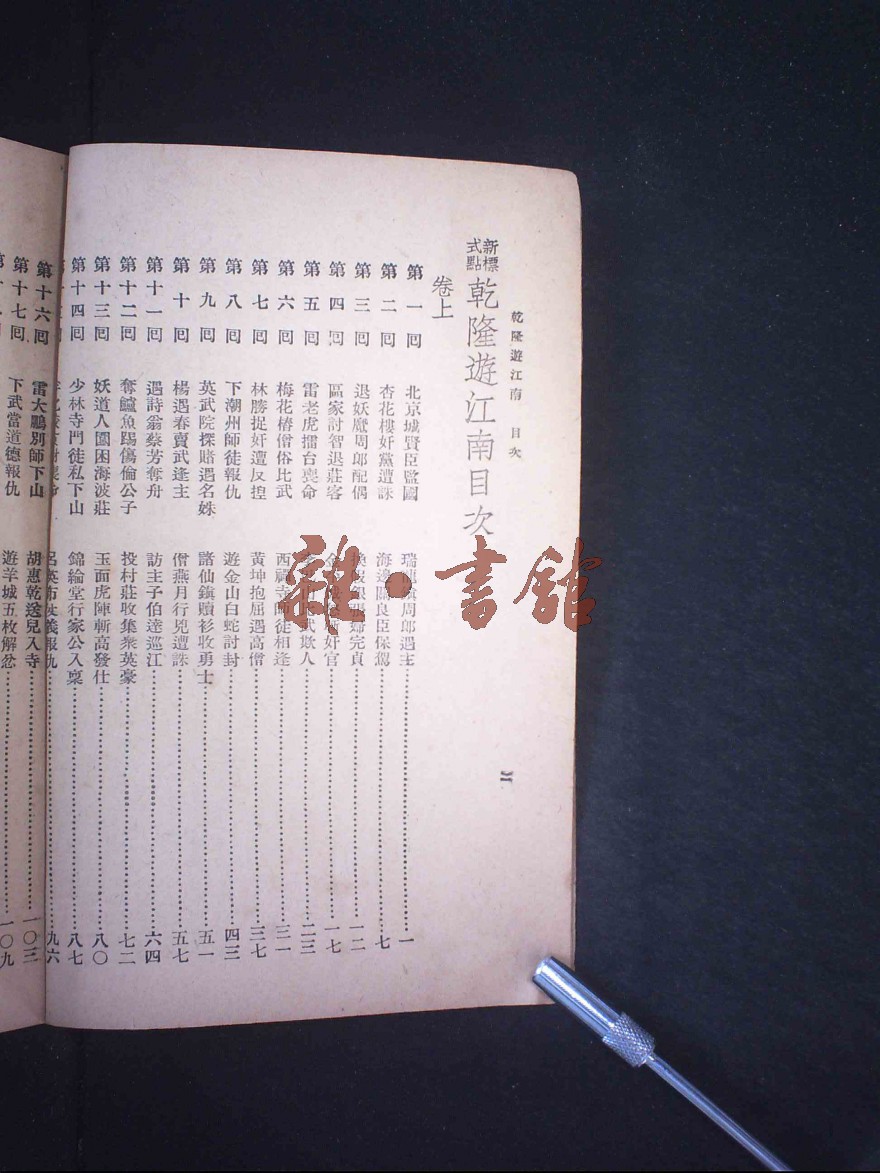 乾隆遊江南 目次
新式標點 乾隆遊江南目次
卷上
第一回 北京城賢臣監國 瑞龍鎮周郎遇主 一
第二回 杏花樓奸黨遭誅 海邊關良臣保駕 七
第三回 退妖魔周郎配偶 完貞 一二
第四回 區家討智退莊客 奸官 一七
第五回 雷老虎擂台喪命 武欺人 二三
第六回 梅花樁僧俗比武 西禪寺師徒相逢 三一
第七回 林勝捉奸遭反捏 黃坤抱屈遇高僧 三七
第八回 下潮州師徒報仇 遊金山白蛇討封 四三
第九回 英武院探賭遇名姝 諸仙鎮贖衫收勇士 五一
第十回 楊遇春賣武逢主 僧燕月行兇遭誅 五七
第十一回 遇詩翁蔡芳奪舟 訪主子伯達巡江 六四
第十二回 奪鱸魚踢傷倫公子 投村莊收集眾英豪 七二
第十三回 妖道人圍困海波莊 玉面虎陣斬高發仕 八〇
第十四回 少林寺門徒私下山 錦綸堂行家公入稟 八七
呂英布 義報仇 九六
第十六回 雷大鵬別師下山 胡惠乾送兒入寺 一〇三
第十七回 下武當道德報仇 遊羊城五枚解忿 一〇九
雜·書館